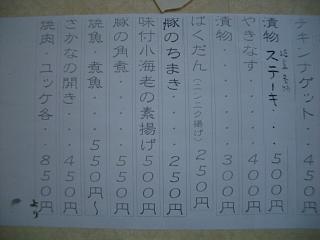 チキンナゲット・・450円
漬物ステーキ・・・500円
やきなす・・・・・400円
漬物・・・・・・・300円
ばくだん(ニンニク揚げ)250円
豚のちまき・・・・250円
味付小海老の素揚げ500円
豚の角煮・・・・・550円
焼魚・煮魚・・・・550円〜
さかなの開き・・・450円
焼肉・ユッケ各・・850円
より